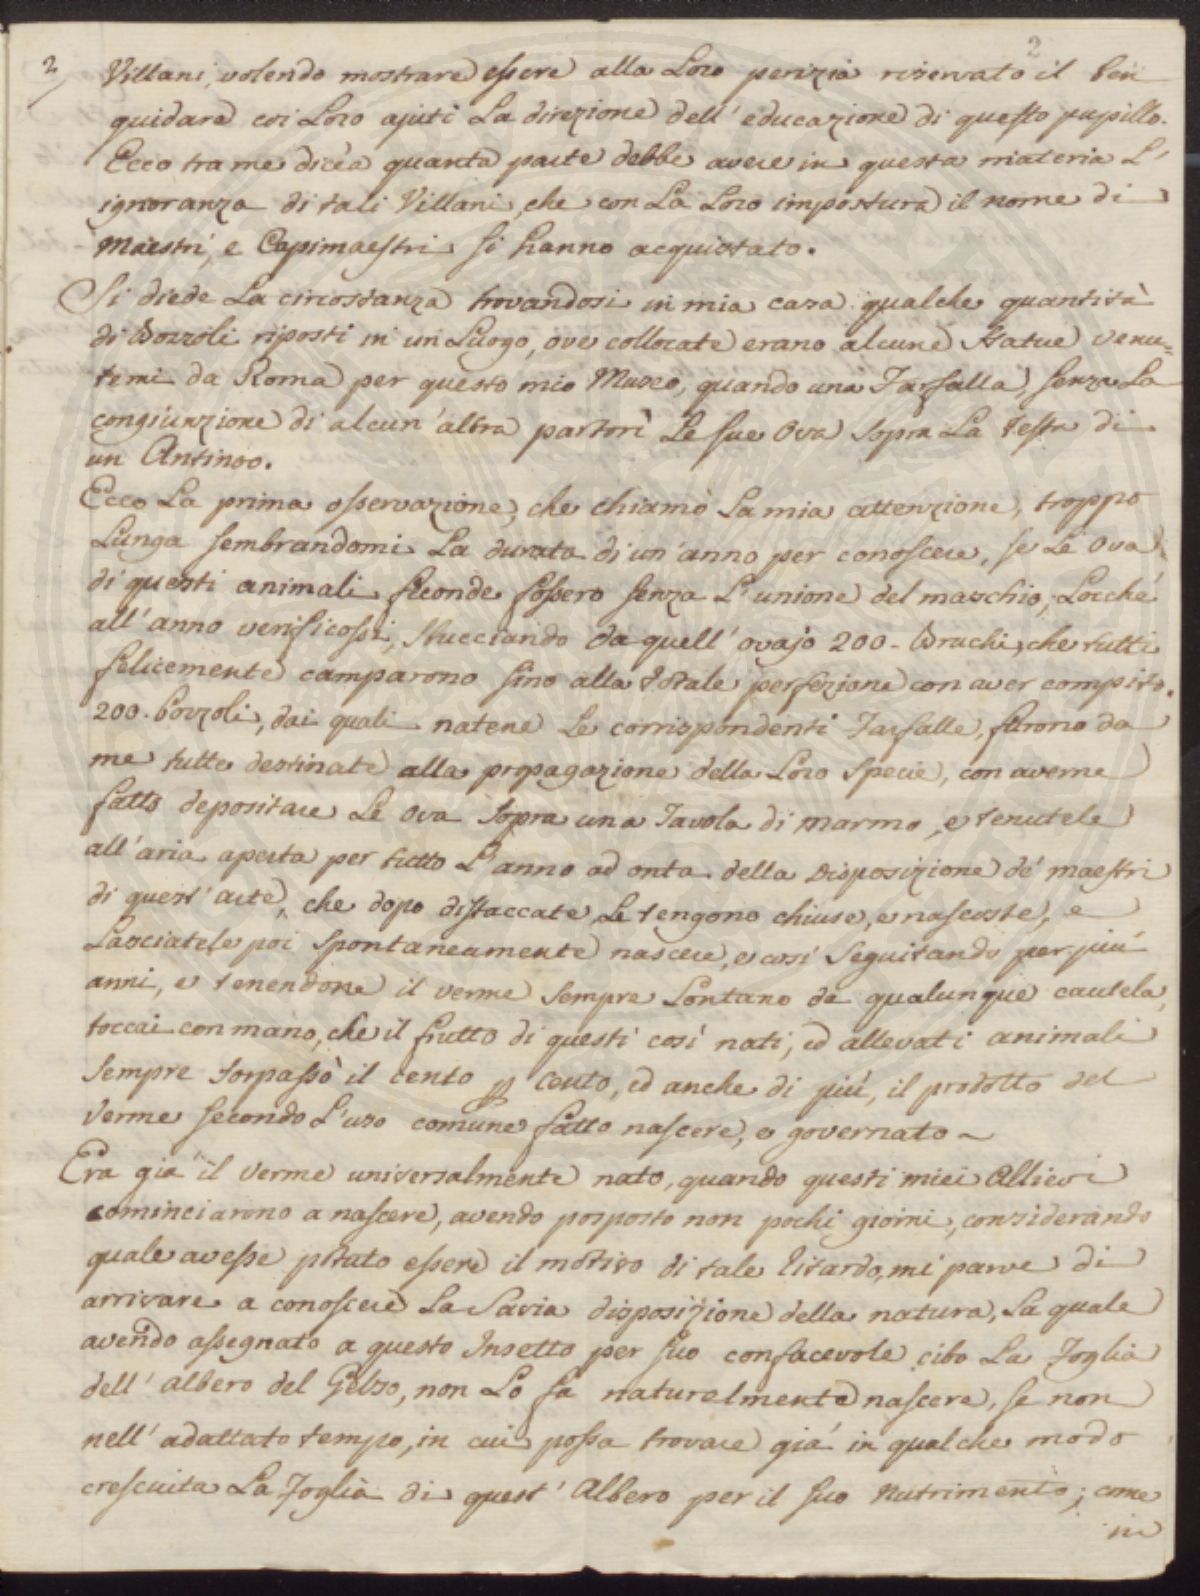 2
2
Villani, volendo mostrare essere alla Loro perizia riservato il ben
guidare coi Loro ajuti La direzione dell' educazione di questo pupillo.
Ecco tra me dicéa quanta parte debbe avere in questa materia L'
ignoranza di tali Villani, che con La Loro impostura il nome di
Maestri, e Capimaestri si hanno acquistato.
Si diede La circostanza trovandosi in mia casa qualche quantità
di Bozzoli riposti in un Luogo, ove collocate erano alcune Statue venu=
temi da Roma per questo mio Museo, quando una Farfalla, senza La
congiunzione di alcun' altra partorì Le sue Ova sopra La Testa di
un Antinoo.
Ecco La prima osservazione, che chiamò La mia attenzione, troppo
Lunga sembrandomi La durata di un' anno per conoscere, se Le Ova
di questi animali feconde fossero senza L' unione del maschio; Locché
all' anno verificossi, Stucciando da quell' ovajo 200 - Bruchi, che tutti
felicemente camparono sino alla totale perfezione con aver compito
200. bozzoli, dai quali natene Le corrispondenti Farfalle, furono da
me tutte destinate alla propagazione della Loro specie, con averne
fatto depositare Le Ova sopra una Tavola di marmo, e tenutele
all' aria aperta per tutto L' anno ad onta della Disposizione de' maestri
di quest' arte, che dopo distaccate Le tengono chiuse, e nascoste, e
Lasciatele poi spontaneamente nascere, e così seguitando per più
anni, e tenendone il verme sempre Lontano da qualunque cautela,
toccai con mano, che il frutto di questi così nati, ed allevati animali
sempre sorpassò il cento p cento, ed anche di più, il prodotto del
verme secondo L' uso comune fatto nascere, e governato ~
Era già il verme universalmente nato, quando questi miei Allievi
cominciarono a nascere, avendo posposto non pochi giorni, considerando
quale avesse potuto essere il motivo di tale ritardo, mi parve di
arrivare a conoscere La Savia disposizione della natura, La quale
avendo assegnato a questo Insetto per suo confacevole cibo La Foglia
dell' albero del Gelso, non Lo fà naturalmente nascere, se non
nell' adattato tempo, in cui possa trovare già in qualche modo
cresciuta La Foglia di quest' Albero per il suo Nutrimento; come
in